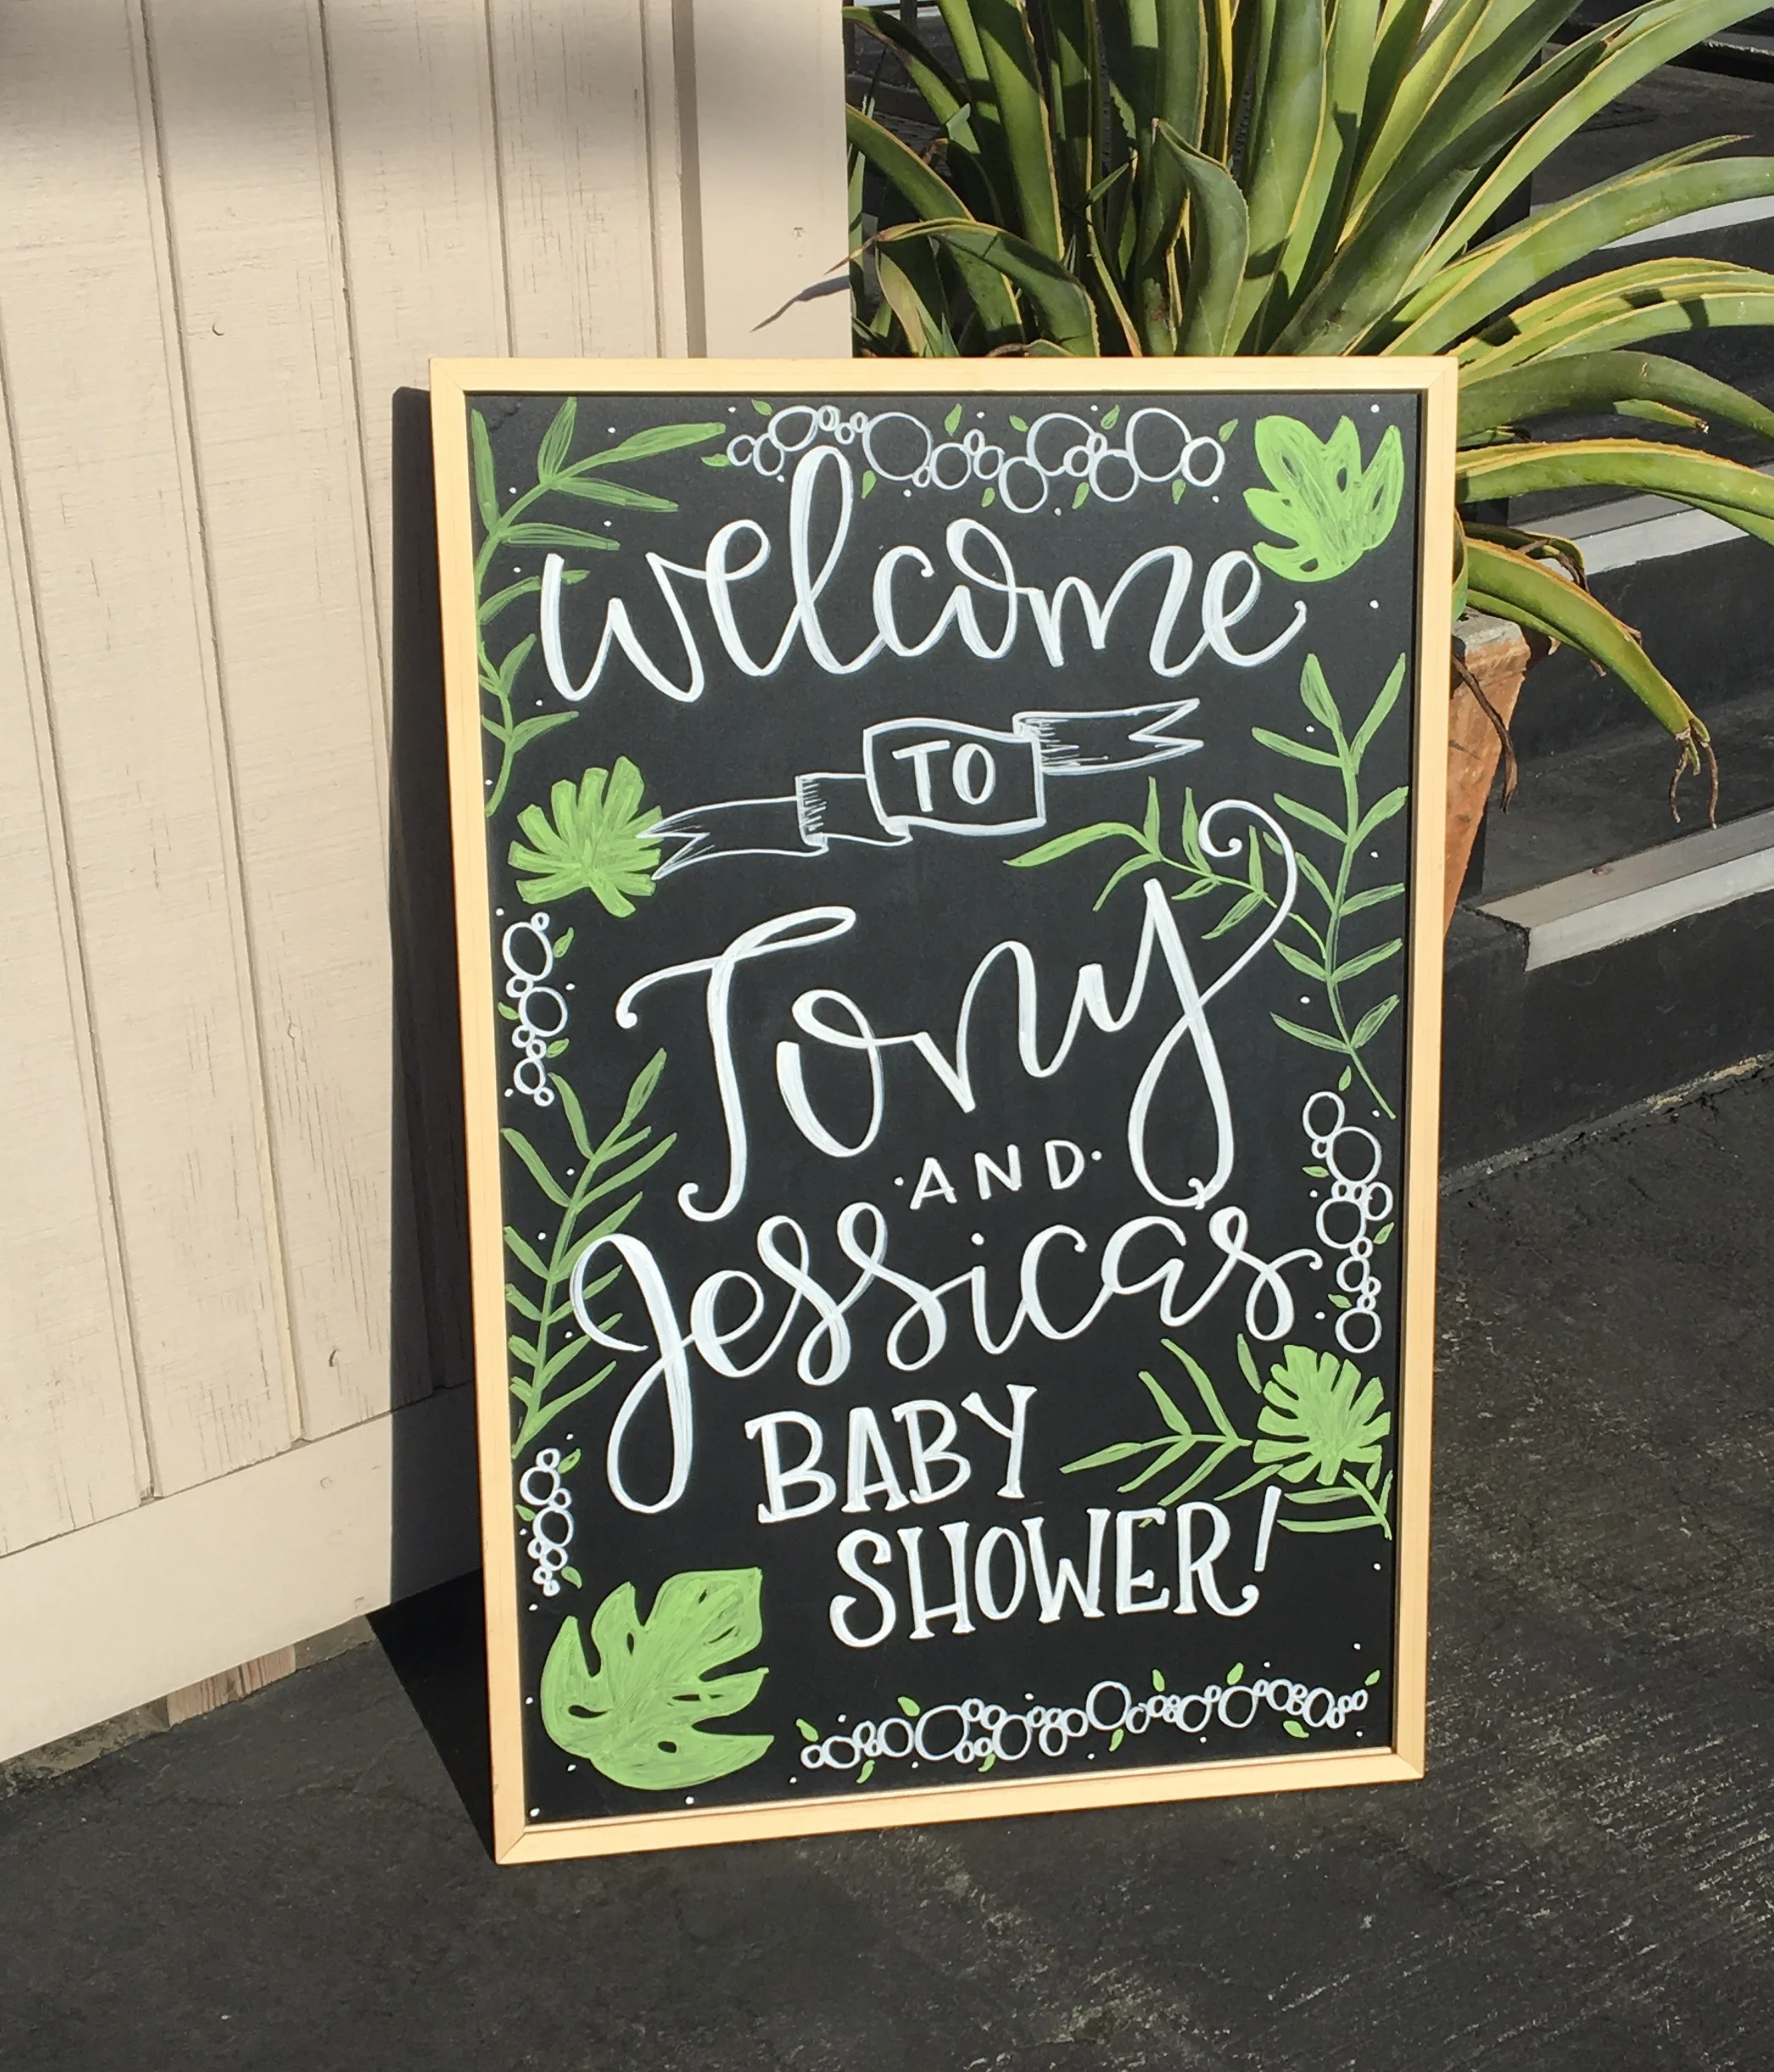 welcome
TO
Tony
·AND·
Jessicas
BABY
SHOWER!